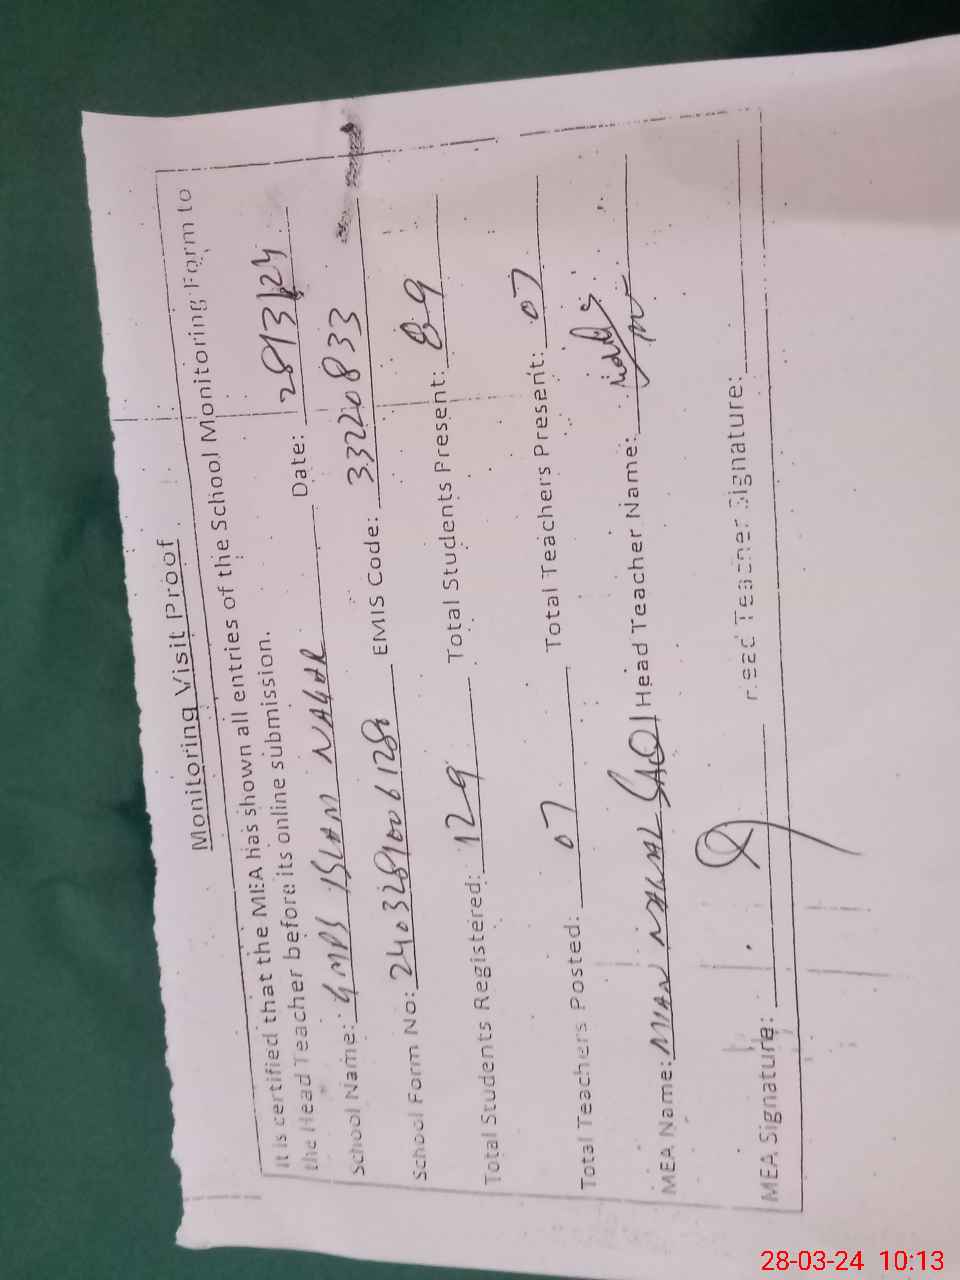 Monitoring Visit Proof
It is certified that the MEA has shown all entries of the School Monitoring Form to
the Head Teacher before its online submission.
School Name: GMPS ISLAM NAGAR Date: 28/3/24
School Form No: EMIS Code: 33220833
Total Students Registered: 129 Total Students Present: 89
Total Teachers Posted: 07 Total Teachers Present: 07
MEA Name: MIAN Head Teacher Name:
MEA Signature: Head Teacher Signature:
28-03-24 10:13